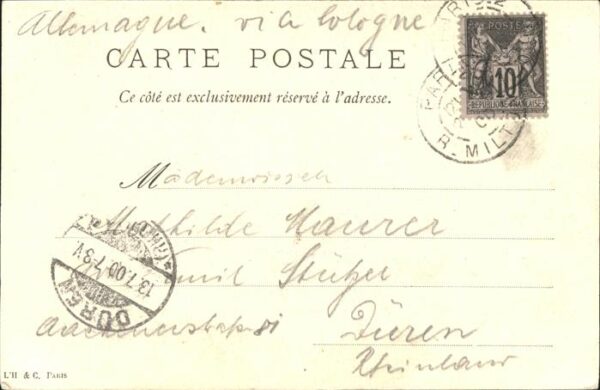 Allemagne. via Cologne
CARTE POSTALE
Ce côté est exclusivement réservé à l'adresse.
POSTE
10
REPUBLIQUE FRANÇAISE
PARIS
R. MILT
Mathilde Maurer
Emil Stützer
Düren
Rheinland
DÜREN
13.7.00.7-8V.
(RHEINL.)
L'H & C, PARIS